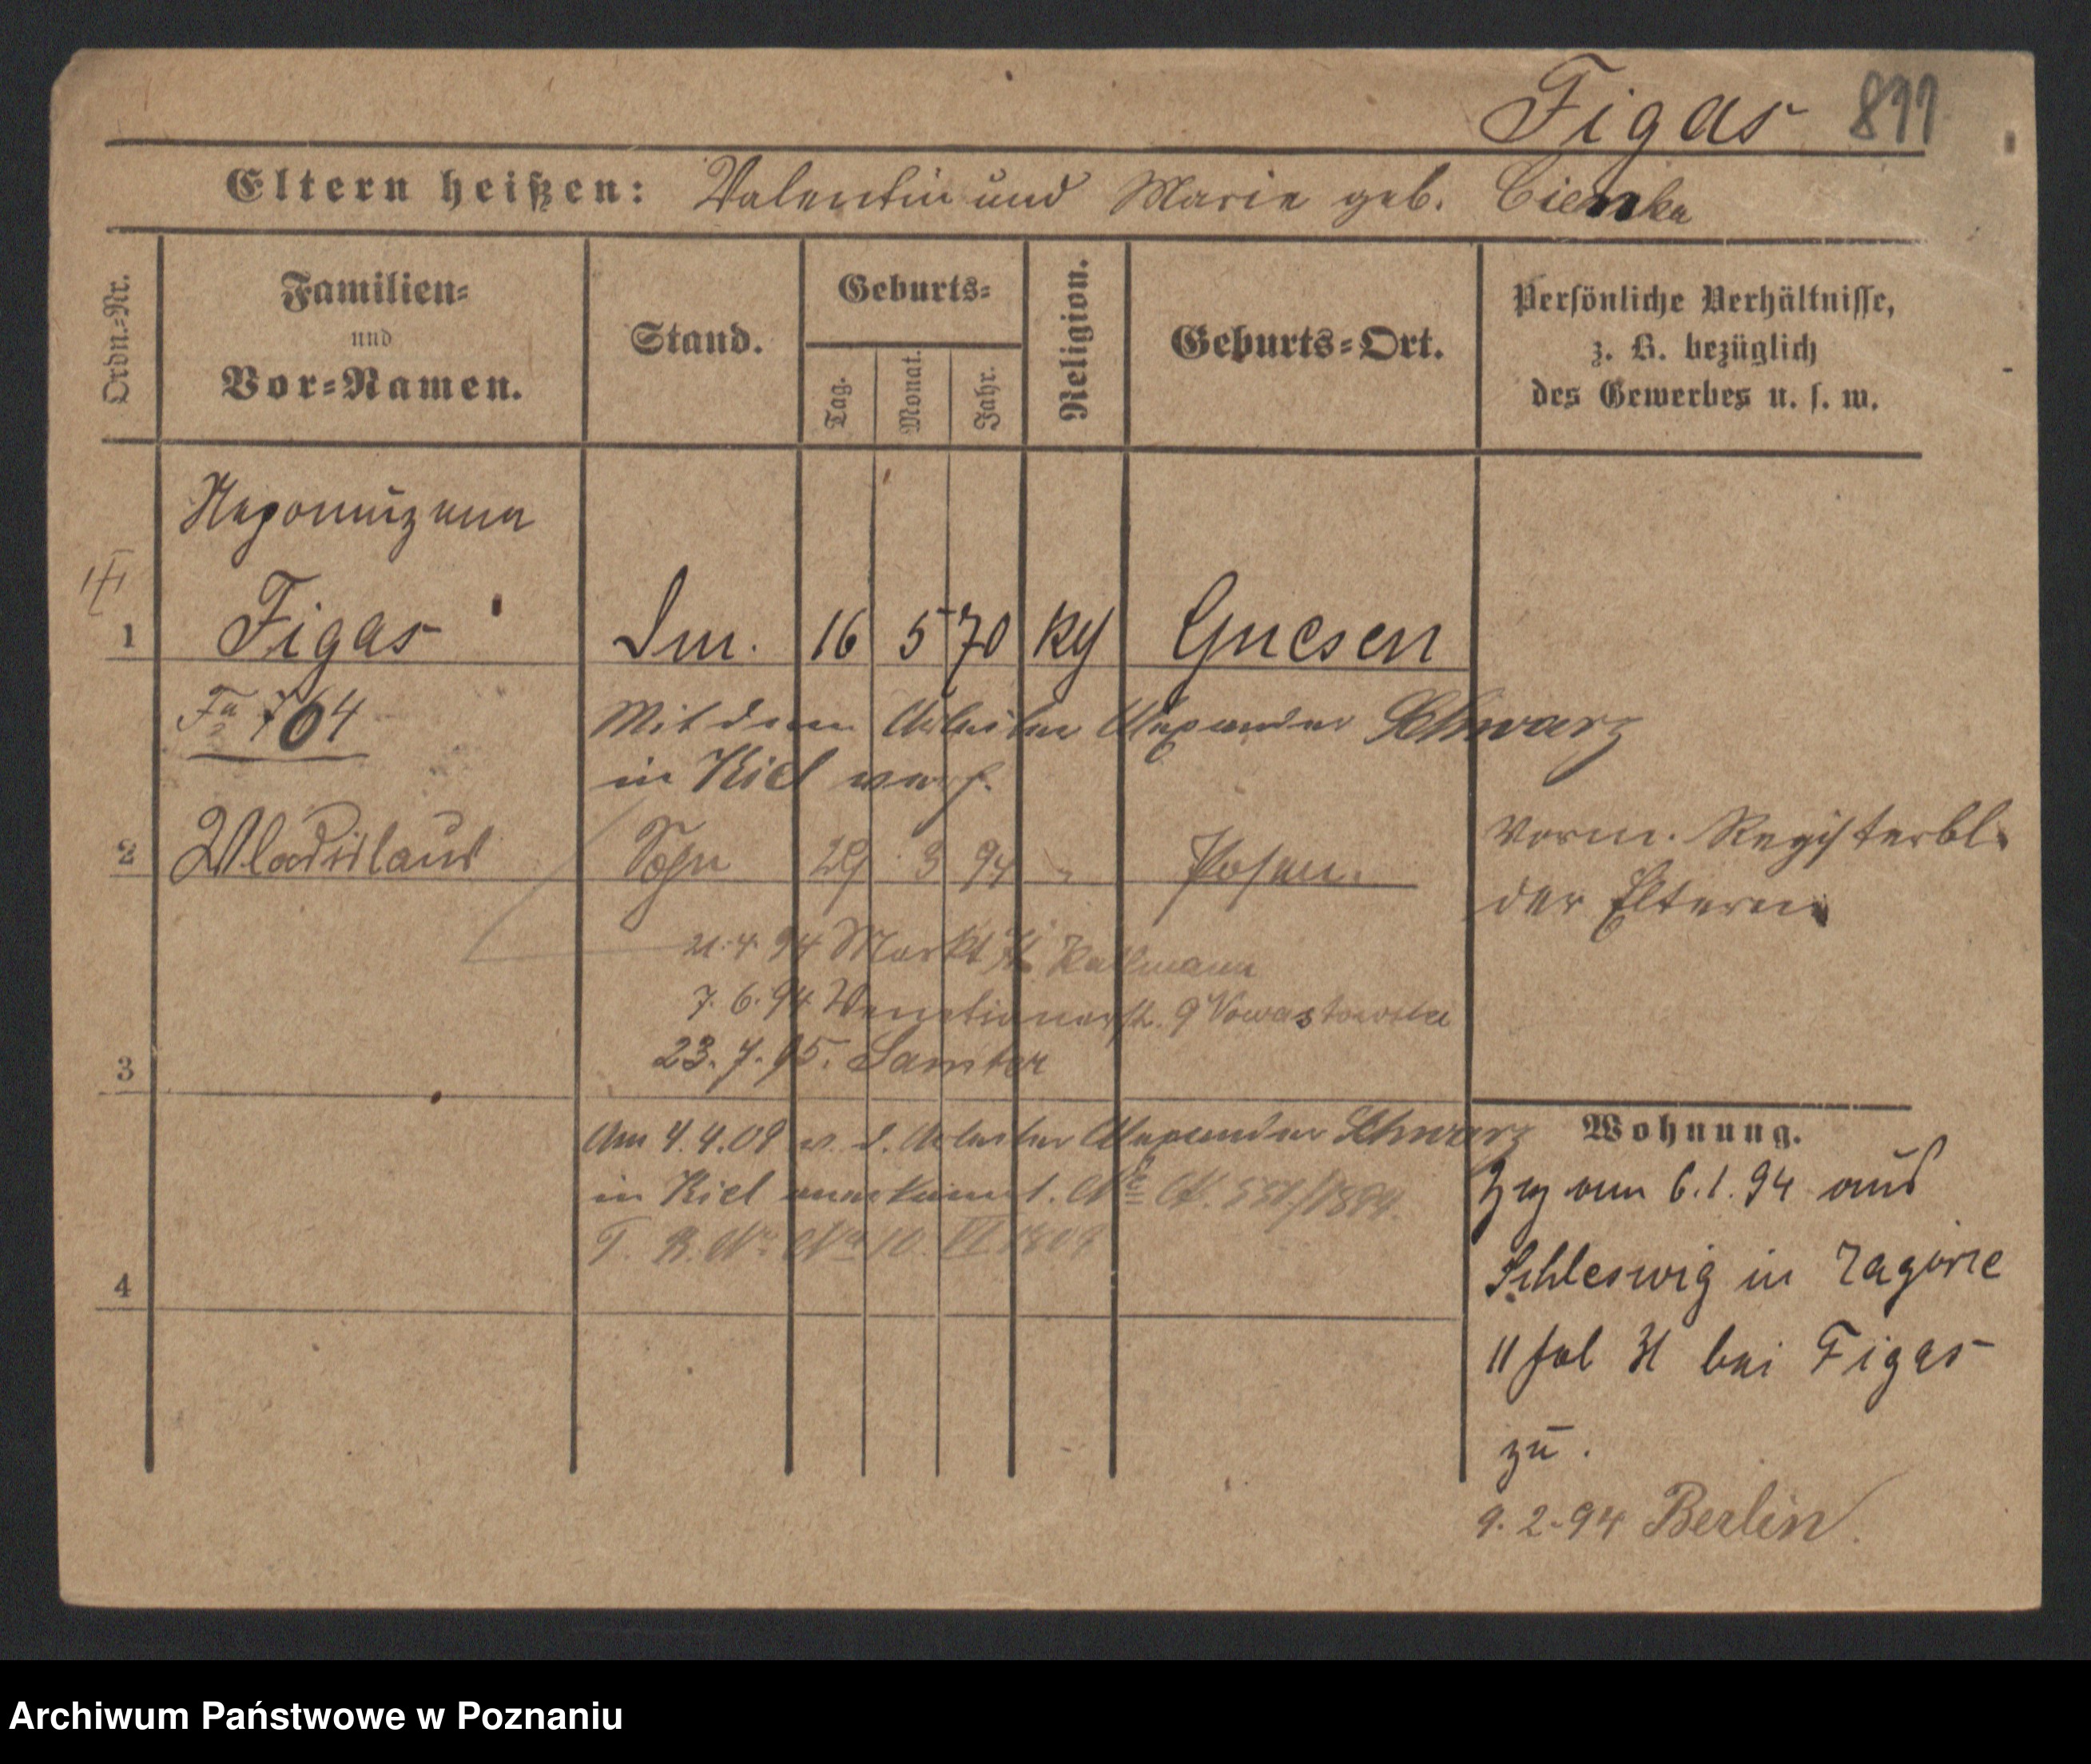 Figas 811
Eltern heißen: Valentin und Marie geb. Cienka
Ordn.-Nr.
Familien-
und
Vor-Namen.
Stand.
Geburts-
Tag.
Monat.
Jahr.
Religion.
Geburts-Ort.
Persönliche Verhältnisse,
z. B. bezüglich
des Gewerbes u. s. w.
Nepomuzena
1 Figas 16 5 70 Gnesen
Fa 764
Mit dem Arbeiter Alexander Schwarz
in Kiel verh.
2 Wladislaus Sohn 29 3 94 Posen.
Vorm. Registerbl.
der Eltern
21.4.94 Markt Kallmann
7.6.94 Venetianerstr. 9
3 23.7.95. Samter
Am 4.4.09 v. d. Arbeiter Alexander Schwarz
in Kiel anerkannt.
4
Wohnung.
Zzg am 6.1.94 aus
Schleswig in Zagorze
11 bei Figas
zu.
9.2.94 Berlin
Archiwum Państwowe w Poznaniu